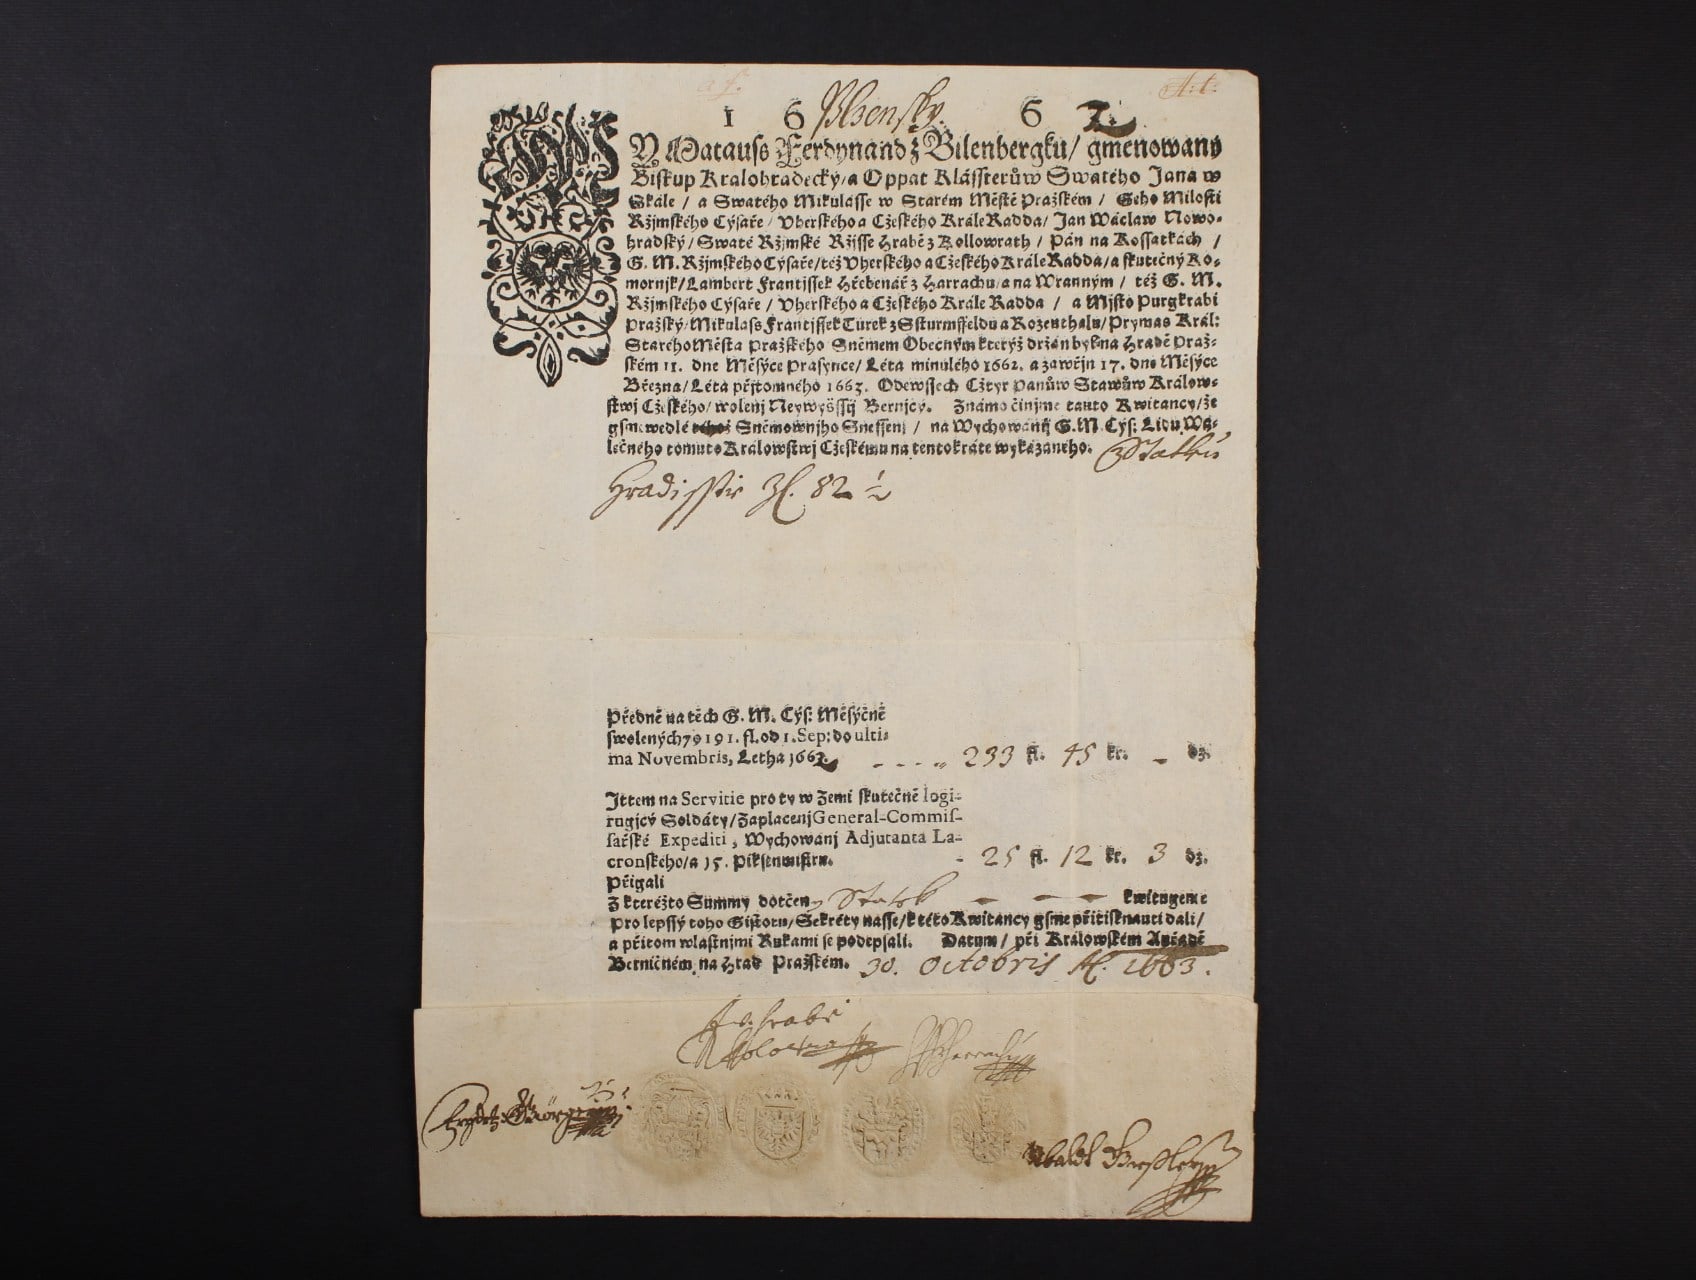 1 6 Plzensky. 6
MY Matauss Ferdynand z Bilenbergku / gmenowaný
Biskup Kralohradecký / a Oppat Klássterůw Swatého Jana w
Skále / a Swatého Mikulásse w Starém Městě Pražském / Geho Milosti
Ržjmského Cýsaře / Vherského a Cžeského Krále Radda / Jan Wáclaw Nowo-
hradský / Swaté Ržjmské Ržjsse Hrabě z Kollowrath / Pán na Kossatkách /
G. M. Ržjmského Cýsaře / též Vherského a Cžeského Krále Radda / a skutečný Ko-
mornjk / Lambert Frantjssek Hřebenář z Harrachu / a na Wranným / též G. M.
Ržjmského Cýsaře / Vherského a Cžeského Krále Radda / a Mjsto Purgkrabí
Pražský / Mikulass Frantjssek Turek z Ssturmffeldu a Rozenthalu / Prymas Král:
Starého Města Pražského Sněmem Obecným kterýž držán byl na Hradě Praž-
ském 11. dne Měsýce Prasynce / Léta minulého 1662. a zawřjn 17. dne Měsýce
Března / Léta přjtomného 1663. Odewssech Cžtyr Panůw Stawůw Králow-
stwj Cžeského / wolenj Neywýssij Bernjcý. Známo činjme tauto Kwitancy / že
gsme wedlé téhož Sněmownjho Snessenj / na Wychowánj G. M. Cýs: Lidu Wá-
lečného tomuto Králowstwj Cžeskému na tentokráte wykázaného. z Statku
Hradisstie Zl. 82 1/2
Předně na těch G. M. Cýs: Měsýčně
swolených 79191. fl. od 1. Sep: do ulti-
ma Novembris, Letha 1663. 233 fl. 45 kr. - dz.
Jttem na Servitie pro ty w Zemi skutečně logi-
rugjcý Soldáty / Zaplacenj General-Commis-
sařské Expediti, Wychowanj Adjutanta La-
cronského / a 15. Piksenmistru. - 25 fl. 12 kr. 3 dz.
Přigali
Z kteréžto Summy dotčený Statek - - - kwitugeme
Pro lepssý toho Gistotu / Sekréty nasse / k této Kwitancy gsme přitisknauti dali /
a přitom wlastnjmi Rukami se podepsali. Datum / při Králowském Auřadě
Berničném na Hrad Pražském. 30. Octobris A. 1663.